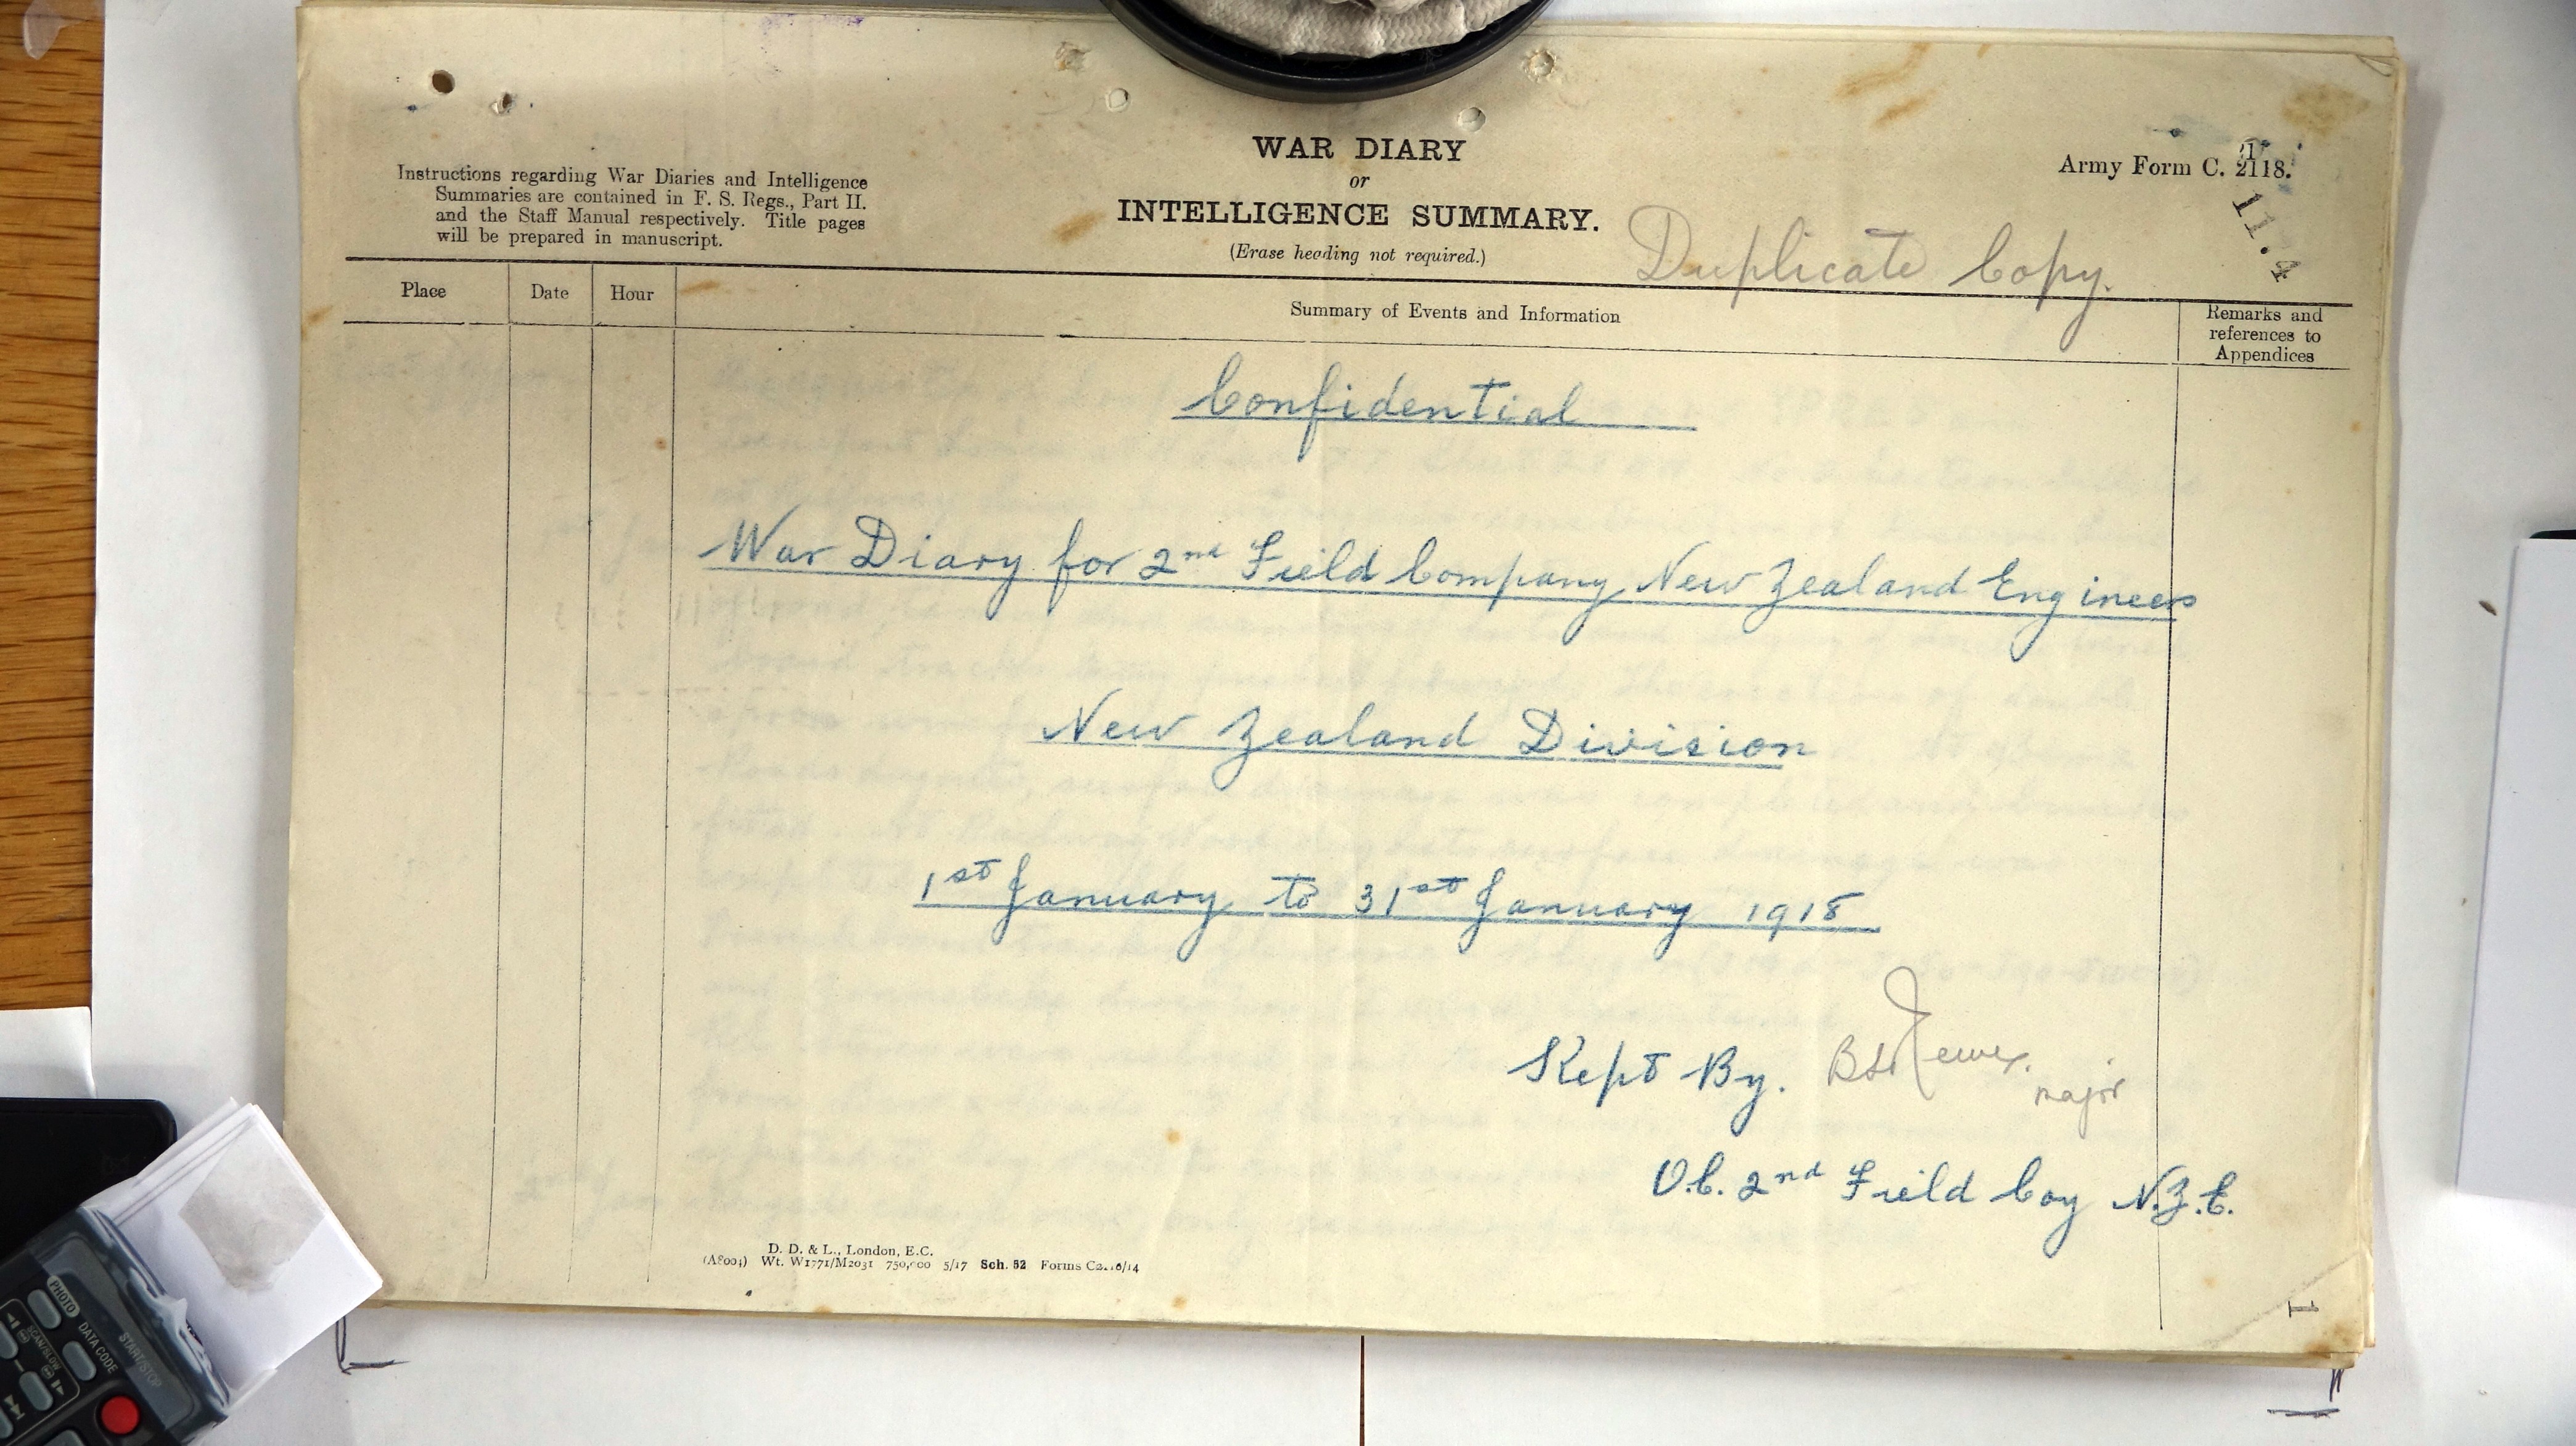 WAR DIARY
or
INTELLIGENCE SUMMARY.
(Erase heading not required.)
Instructions regarding War Diaries and Intelligence
Summaries are contained in F. S. Regs., Part II.
and the Staff Manual respectively. Title pages
will be prepared in manuscript.
Army Form C. 2118.
11.4
Duplicate Copy.
Place
Date
Hour
Summary of Events and Information
Remarks and
references to
Appendices
Confidential
War Diary for 2nd Field Company New Zealand Engineers
New Zealand Division
1st January to 31st January 1918
Kept By.
major
O.C. 2nd Field Coy N.Z.E.
D. D. & L., London, E.C.
(A8004) Wt. W1771/M2031 750,000 5/17 Sch. 52 Forms
1
PHOTO
DATA CODE
START/STOP
SCAN/SLOW